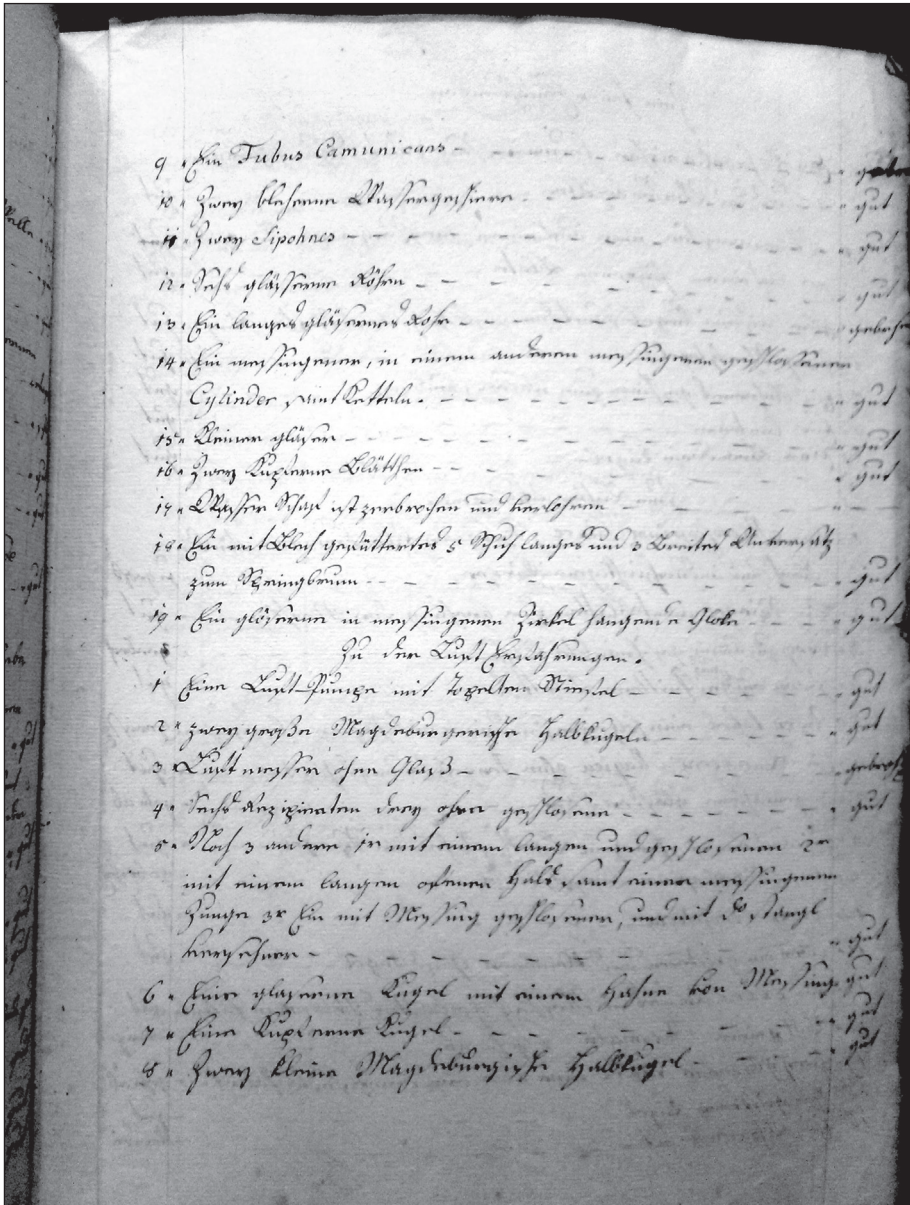 9 " Ein Tubus Camunicans -
10 " Zwey blecherne Wassergeschirre - - - " gut
11 " Zwey Siphones - - - " gut
12 " Sechs glässerne Röhren - - - " gut
13 " Ein langes gläsernes Rohr - - - " gebrochen
14 " Ein messingener, in einem anderem messingenen geschlossener
Cylinder samt Ketteln. - - - " gut
15 " Kleiner gläser - - - " gut
16 " Zwey Kupferne Blätthen - - - " gut
17 " Wasser Schaf ist zerbrochen und verlohren - - -
18 " Ein mit Blech gefüttertes 5 Schuh langes und 3 Breites Untersatz
zum Springbrunn - - - " gut
19 " Ein gläserne in messingenen Zirkel hangende Gloke - - - " gut
Zu der Luft Erfahrungen.
1 Eine Luft-Pumpe mit Topeltem Stiefel - - - " gut
2 " zwey große Magdeburgerische Halbkugeln - - - " gut
3 " Luftmesser ohne Glaß - - - " gebroch
4 " Sechs Rezipienten drey oben geschlosene - - - " gut
5 " Noch 3 andere 1r mit einem langen und geschlosenen 2r
mit einem langen ofenen Hals samt einer messingenen
Zunge 3r Ein mit Messing geschlosenen, und mit do Stangl
versehener - - - " gut
6 " Eine glaserne Kugel mit einem Hahne von Messing " gut
7 " Eine Kupferne Kugel - - - " gut
8 " Zwey kleine Magdeburgische Halbkugel - - - " gut